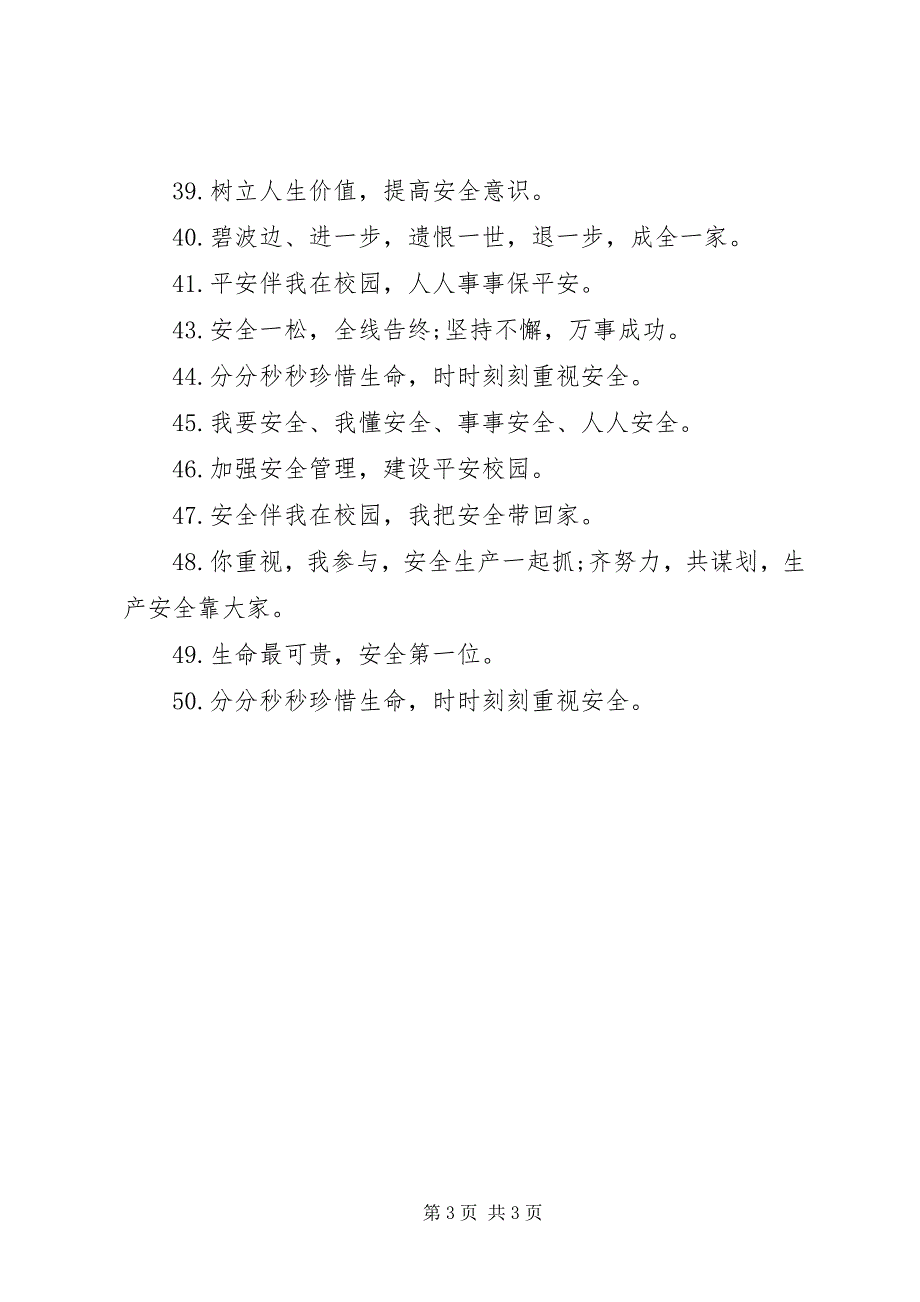 39.树立人生价值，提高安全意识。
40.碧波边、进一步，遗恨一世，退一步，成全一家。
41.平安伴我在校园，人人事事保平安。
43.安全一松，全线告终;坚持不懈，万事成功。
44.分分秒秒珍惜生命，时时刻刻重视安全。
45.我要安全、我懂安全、事事安全、人人安全。
46.加强安全管理，建设平安校园。
47.安全伴我在校园，我把安全带回家。
48.你重视，我参与，安全生产一起抓;齐努力，共谋划，生
产安全靠大家。
49.生命最可贵，安全第一位。
50.分分秒秒珍惜生命，时时刻刻重视安全。
第 3 页 共 3 页